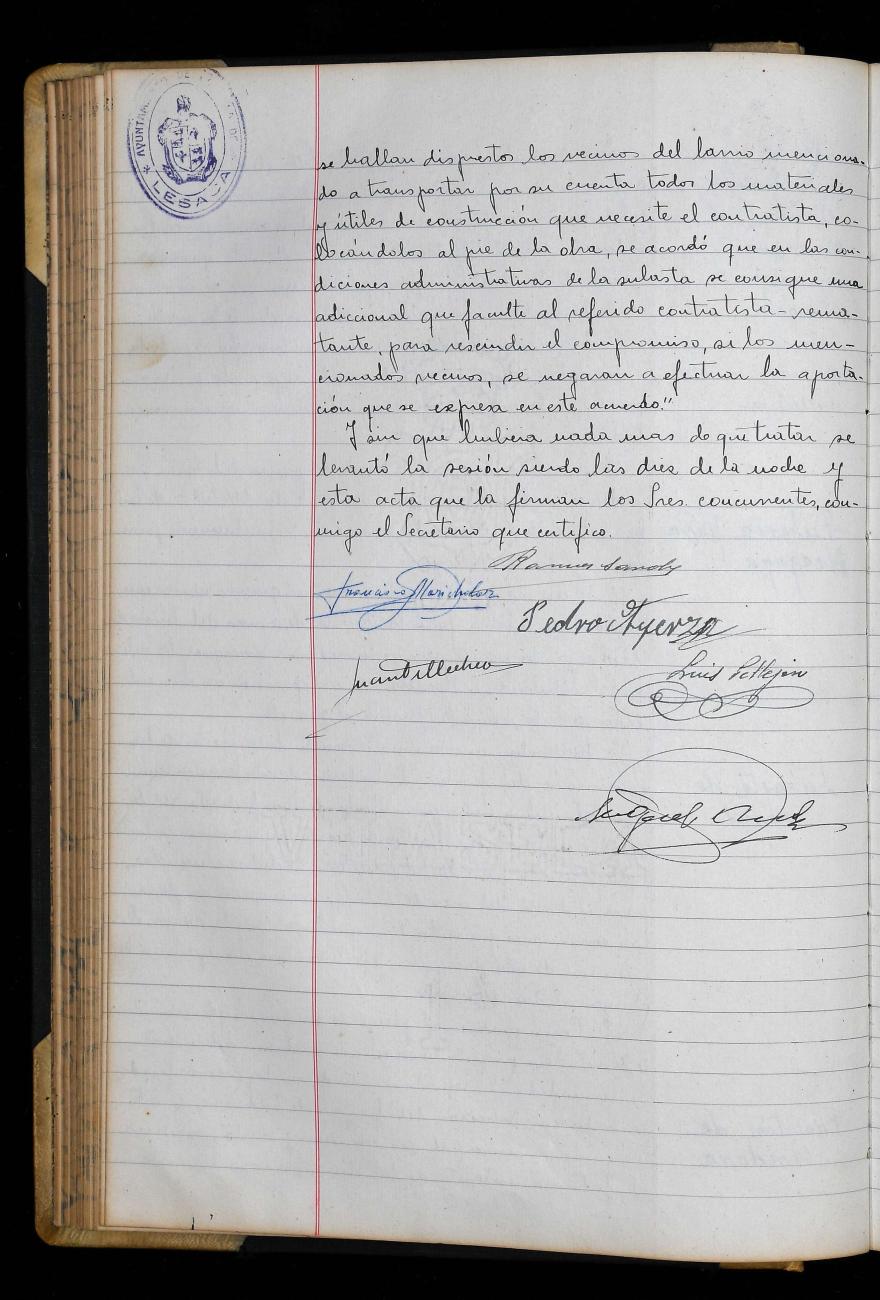 AYUNTAMIENTO DE
* LESACA
se hallan dispuestos los vecinos del barrio menciona-
do a transportar por su cuenta todos los materiales
y útiles de construcción que necesite el contratista, co-
locándolos al pie de la obra, se acordó que en las con-
diciones administrativas de la subasta se consigne una
adiccional que faculte al referido contratista-rema-
tante, para rescindir el compromiso, si los men-
cionados vecinos, se negaran a efectuar la aporta-
ción que se expresa en este acuerdo."
Y sin que hubiera nada mas de que tratar se
levantó la sesión siendo las diez de la noche y
esta acta que la firman los Sres. concurrentes, con-
migo el Secretario que certifico.
Francisco Marichalar
Pedro Ayerza
Luis
Miguel